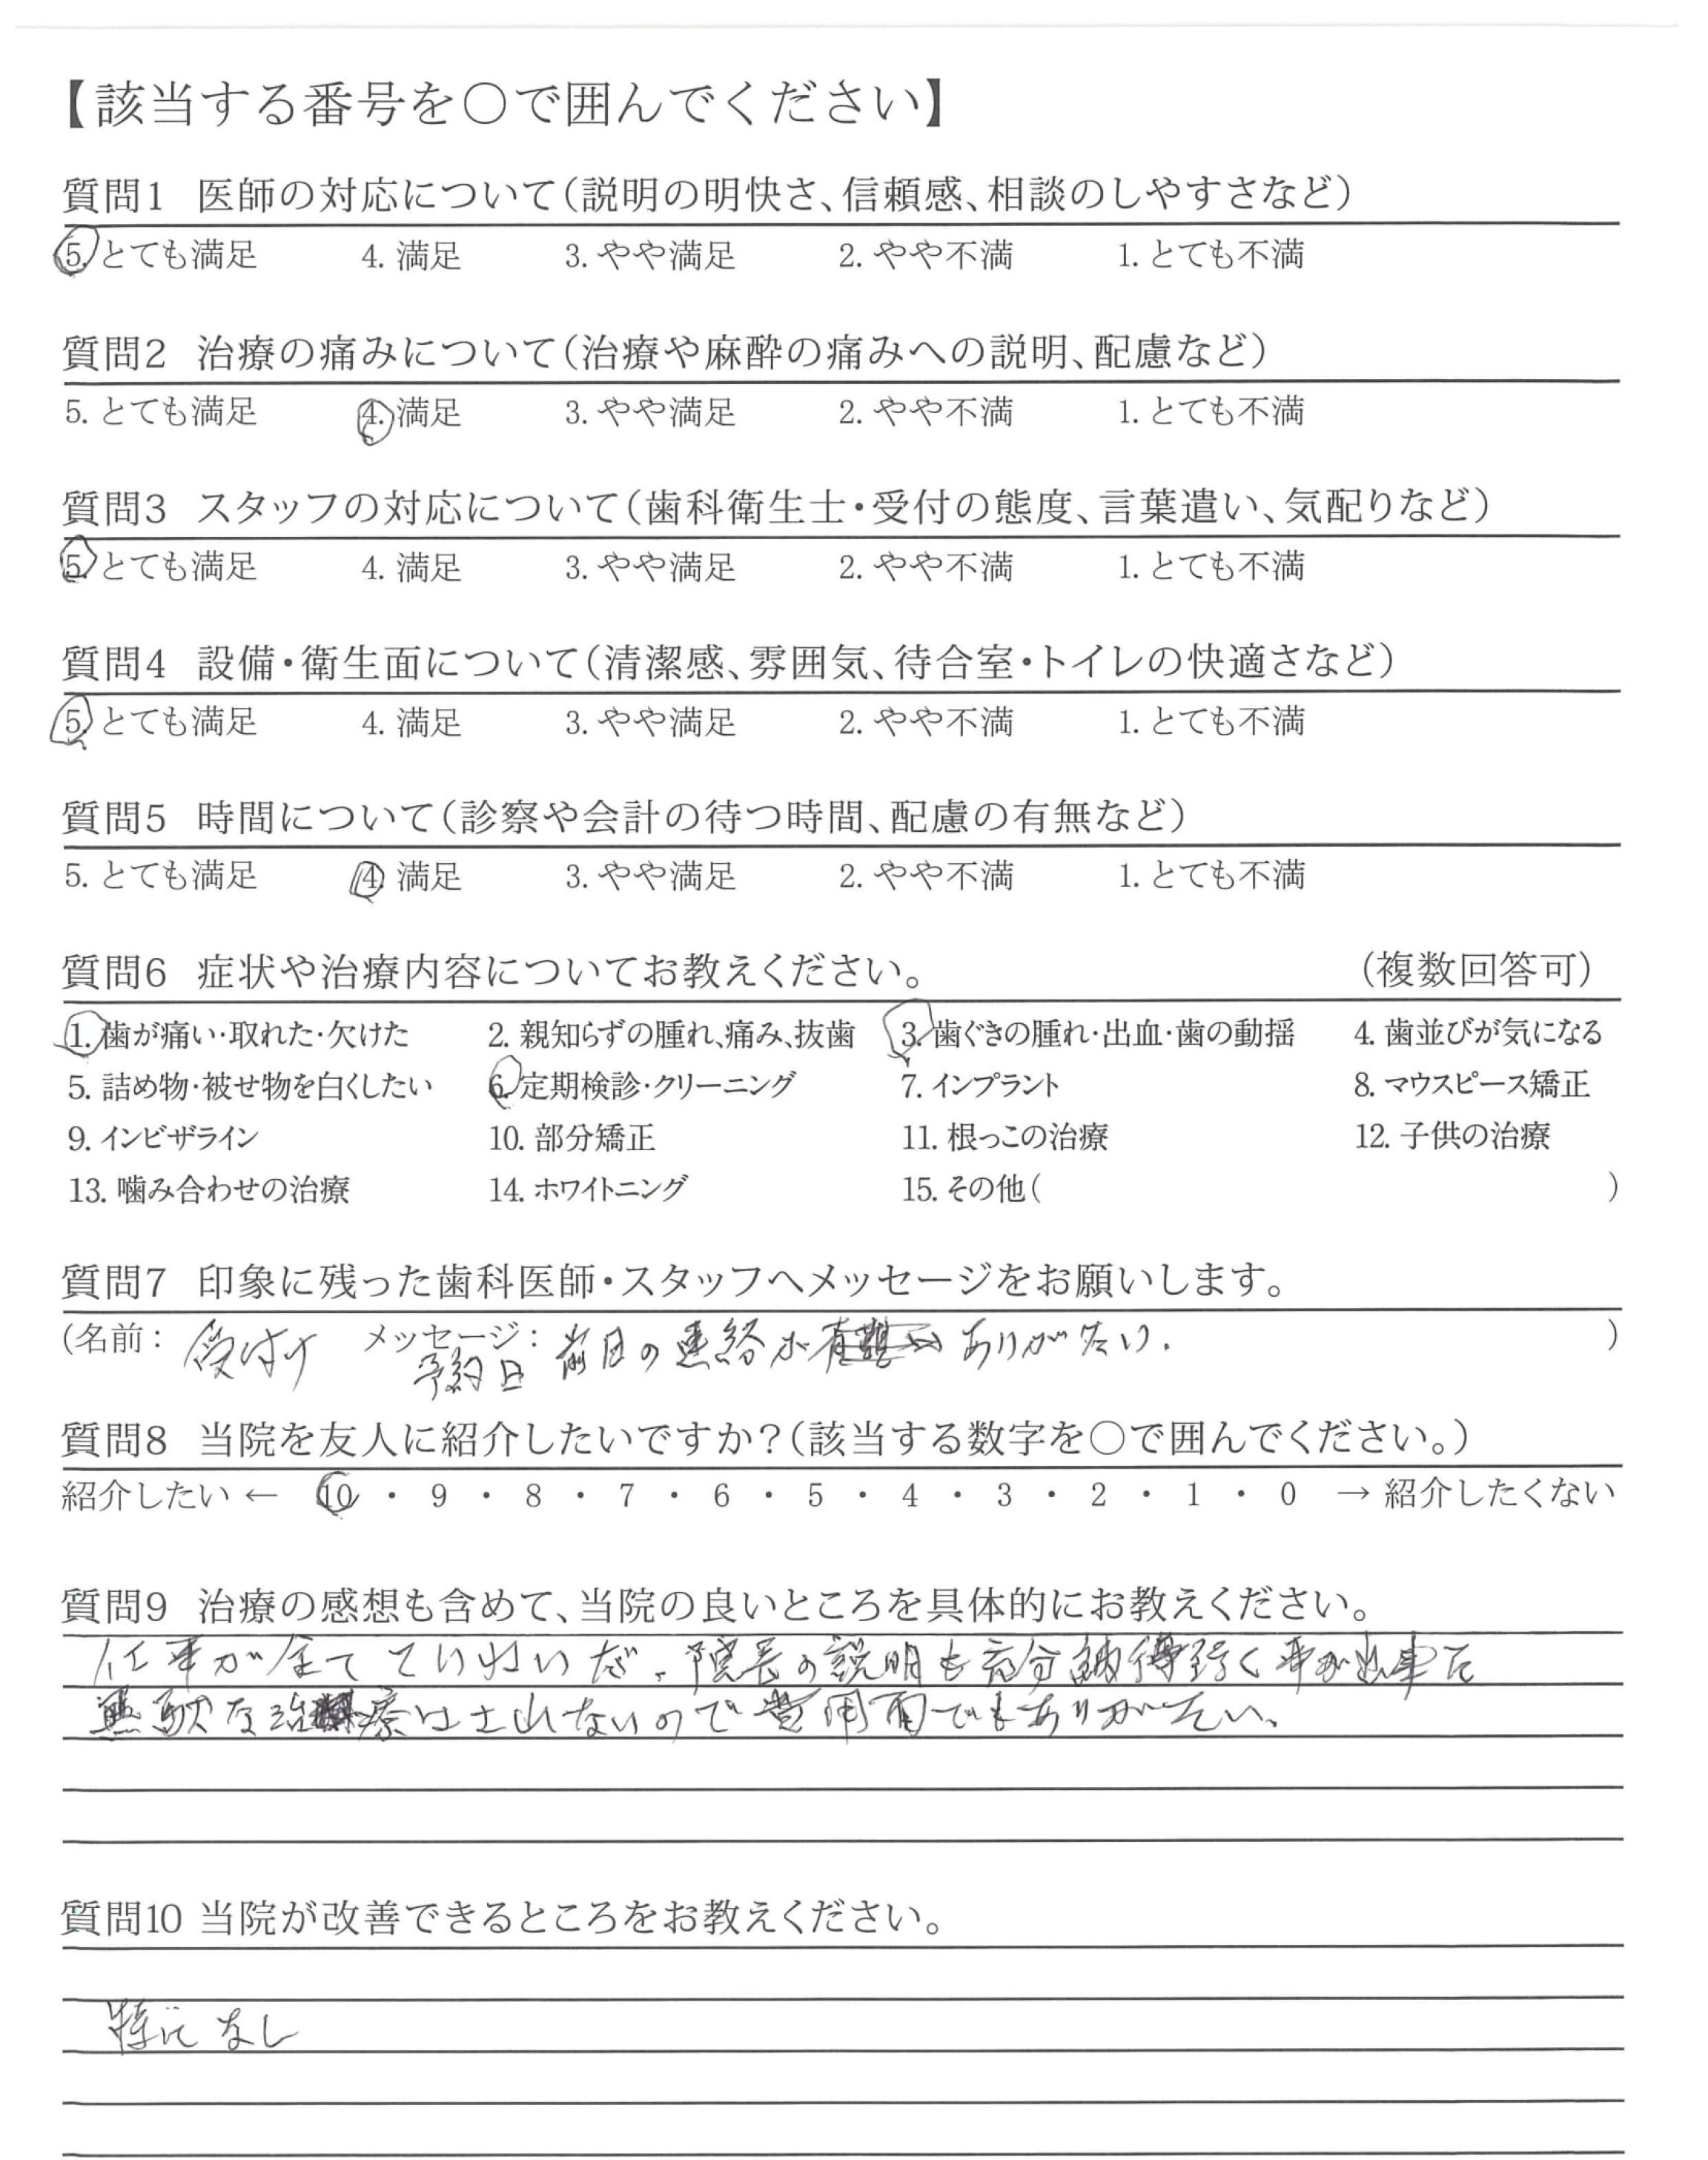 【該当する番号を○で囲んでください】
質問1 医師の対応について（説明の明快さ、信頼感、相談のしやすさなど）
5. とても満足 4. 満足 3. やや満足 2. やや不満 1. とても不満
質問2 治療の痛みについて（治療や麻酔の痛みへの説明、配慮など）
5. とても満足 4. 満足 3. やや満足 2. やや不満 1. とても不満
質問3 スタッフの対応について（歯科衛生士・受付の態度、言葉遣い、気配りなど）
5. とても満足 4. 満足 3. やや満足 2. やや不満 1. とても不満
質問4 設備・衛生面について（清潔感、雰囲気、待合室・トイレの快適さなど）
5. とても満足 4. 満足 3. やや満足 2. やや不満 1. とても不満
質問5 時間について（診察や会計の待つ時間、配慮の有無など）
5. とても満足 4. 満足 3. やや満足 2. やや不満 1. とても不満
質問6 症状や治療内容についてお教えください。 （複数回答可）
1. 歯が痛い・取れた・欠けた 2. 親知らずの腫れ、痛み、抜歯 3. 歯ぐきの腫れ・出血・歯の動揺 4. 歯並びが気になる
5. 詰め物・被せ物を白くしたい 6. 定期検診・クリーニング 7. インプラント 8. マウスピース矯正
9. インビザライン 10. 部分矯正 11. 根っこの治療 12. 子供の治療
13. 噛み合わせの治療 14. ホワイトニング 15. その他（ ）
質問7 印象に残った歯科医師・スタッフへメッセージをお願いします。
（名前： 受付け メッセージ： 前日の連絡が ありがたい. ）
予約日
質問8 当院を友人に紹介したいですか？（該当する数字を○で囲んでください。）
紹介したい ← 10 ・ 9 ・ 8 ・ 7 ・ 6 ・ 5 ・ 4 ・ 3 ・ 2 ・ 1 ・ 0 → 紹介したくない
質問9 治療の感想も含めて、当院の良いところを具体的にお教えください。
仕事が全て ていねいだ、院長の説明も充分納得行く事が出来た
無駄な治療は されないので費用面でもありがたい、
質問10 当院が改善できるところをお教えください。
特になし